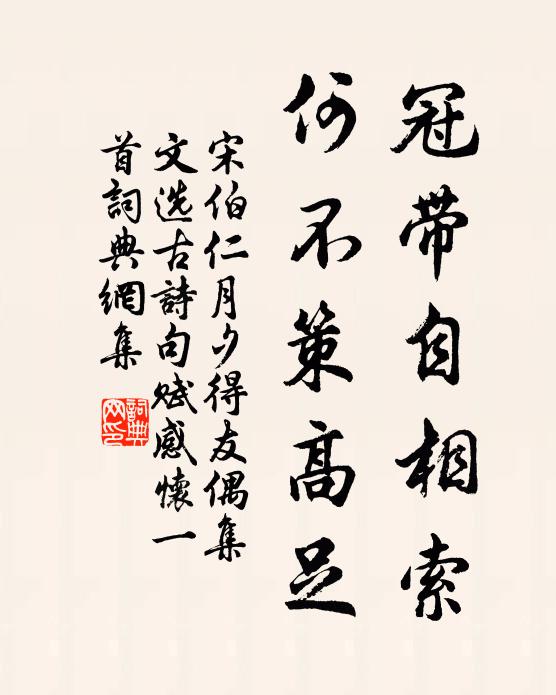 冠带自相索
何不策高足
宋伯仁月夕得友偶集
文选古詩句赋感懷一
首詞典網集
詞典网印